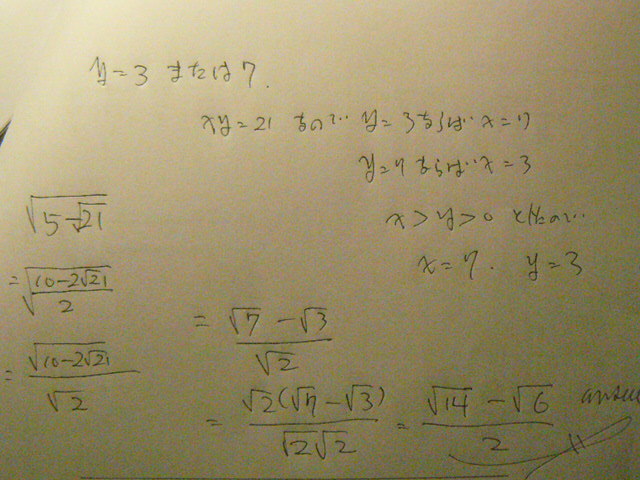 y=3 または 7.
xy=21 なので y=3ならば x=7
y=7 ならば x=3
x>y>0 としたので
x=7. y=3
√(5-√21)
=√((10-2√21)/2)
=√(10-2√21)/√2
=(√7-√3)/√2
=√2(√7-√3)/(√2√2)=(√14-√6)/2